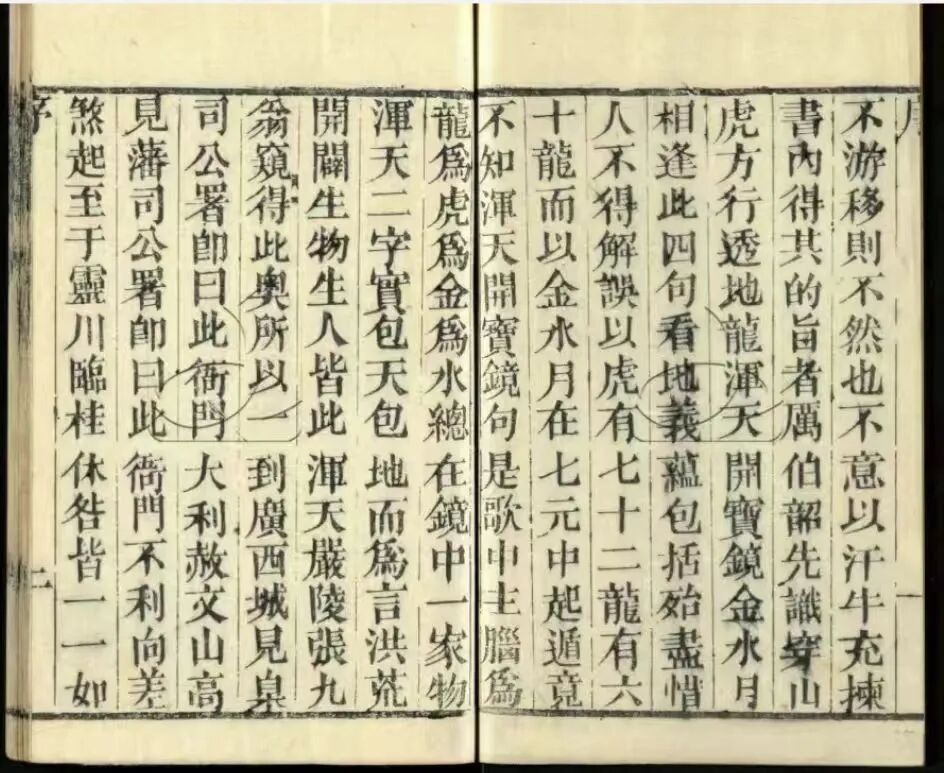 序 一
不游移則不然也不意以汗牛充揀
書內得其的旨者厲伯韶先識穿山
虎方行透地龍渾天開寶鏡金水月
相逢此四句看地義蘊包括殆盡惜
人不得解誤以虎有七十二龍有六
十龍而以金水月在七元中起遁竟
不知渾天開寶鏡句是歌中主腦爲
龍爲虎爲金爲水總在鏡中一家物
渾天二字實包天包地而爲言洪荒
開闢生物生人皆此渾天嚴陵張九
翁窺得此奧所以一到廣西城見臬
司公署卽曰此衙門大利赦文山高
見藩司公署卽曰此衙門不利向差
煞起至于靈川臨桂休咎皆一一如
序 二